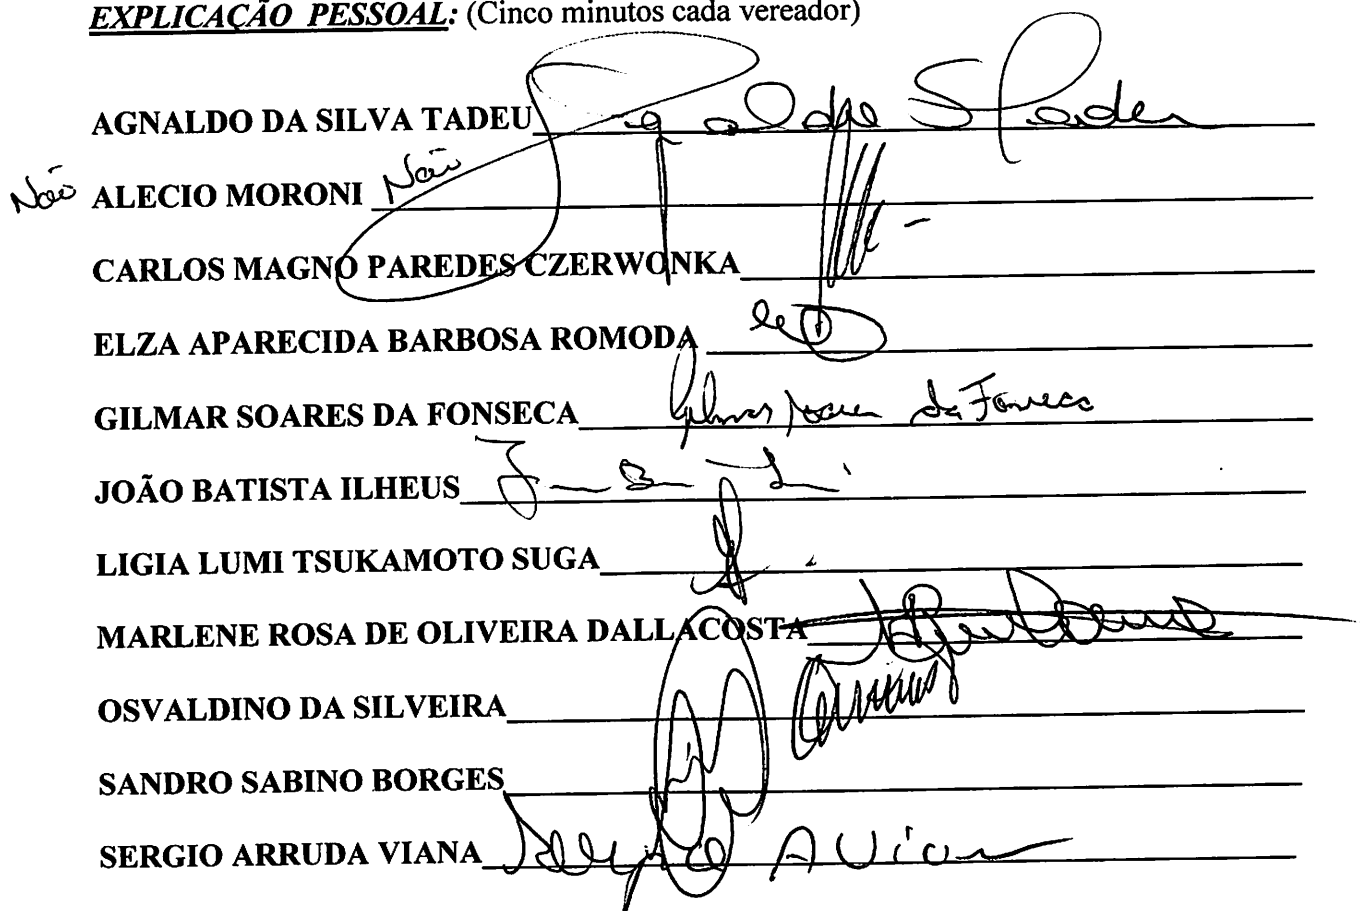 EXPLICAÇÃO PESSOAL: (Cinco minutos cada vereador)
AGNALDO DA SILVA TADEU Agnaldo S Tadeu
Não ALECIO MORONI Não
CARLOS MAGNO PAREDES CZERWONKA
ELZA APARECIDA BARBOSA ROMODA
GILMAR SOARES DA FONSECA Gilmar Soares da Fonseca
JOÃO BATISTA ILHEUS
LIGIA LUMI TSUKAMOTO SUGA
MARLENE ROSA DE OLIVEIRA DALLACOSTA
OSVALDINO DA SILVEIRA
SANDRO SABINO BORGES
SERGIO ARRUDA VIANA Sergio A Viana